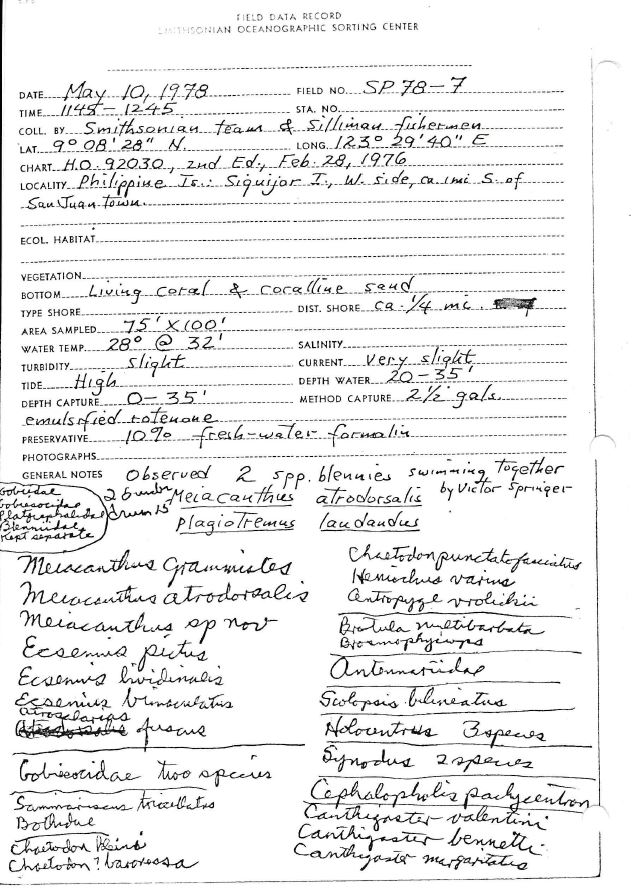 FIELD DATA RECORD
SMITHSONIAN OCEANOGRAPHIC SORTING CENTER
DATE May 10, 1978 FIELD NO. SP 78-7
TIME 1145 - 1245 STA. NO.
COLL. BY Smithsonian team & Silliman fishermen
LAT. 9° 08' 28" N. LONG. 123° 29' 40" E
CHART H.O. 92030, 2nd Ed., Feb. 28, 1976
LOCALITY Philippine Is.: Siquijor I., W. side, ca. 1mi S. of
San Juan town.
ECOL. HABITAT
VEGETATION
BOTTOM Living coral & coralline sand
TYPE SHORE DIST. SHORE ca. 1/4 mi.
AREA SAMPLED 75' X 100'
WATER TEMP. 28° @ 32' SALINITY
TURBIDITY slight CURRENT very slight
TIDE High DEPTH WATER 20-35'
DEPTH CAPTURE 0-35' METHOD CAPTURE 2 1/2 gals.
emulsified rotenone
PRESERVATIVE 10% fresh-water formalin
PHOTOGRAPHS
GENERAL NOTES Observed 2 spp. blennies swimming together
by Victor Springer
Meiacanthus atrodorsalis
Plagiotremus laudandus
Gobiidae
Gobiesocidae
Platycephalidae
Blenniidae
kept separate
drum 15
Meiacanthus grammistes
Meiacanthus atrodorsalis
Meiacanthus sp nov
Ecsenius pictus
Ecsenius lividinalis
Ecsenius bimaculatus
Atrosalarias fuscus
Gobiesocidae two species
Samariscus triocellatus
Bothidae
Chaetodon kleinii
Chaetodon ? baronessa
Chaetodon punctatofasciatus
Heniochus varius
Centropyge vrolickii
Brotula multibarbata
Brosmophyciops
Antennariidae
Scolopsis bilineatus
Holocentrus 3 species
Synodus 2 species
Cephalopholis pachycentron
Canthigaster valentini
Canthigaster bennetti
Canthigaster margaritatus